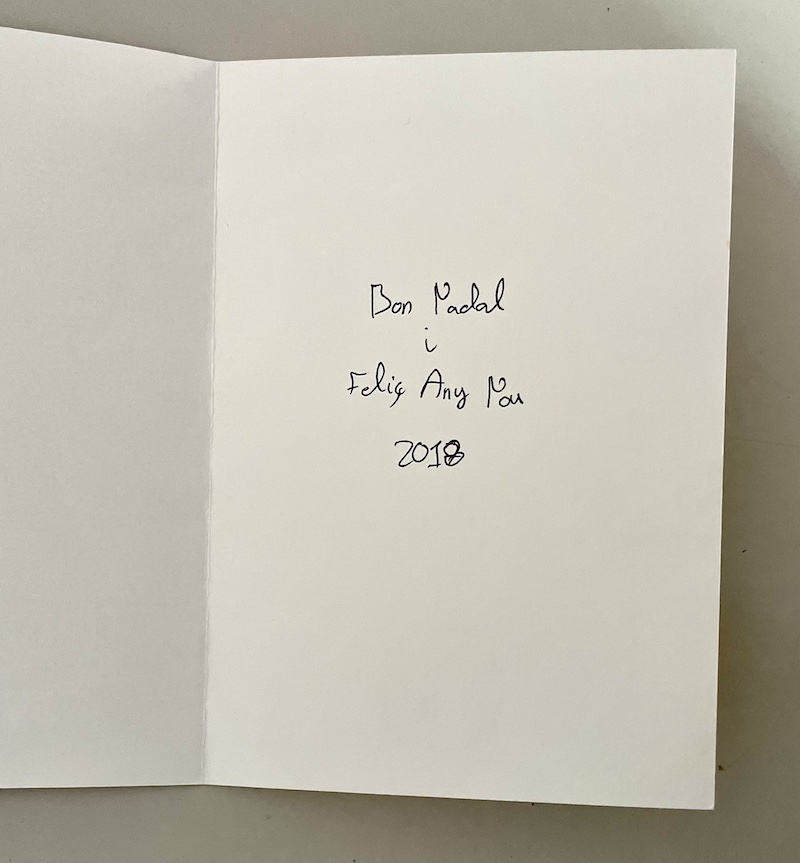 Bon Nadal
i
Feliç Any Nou
2018